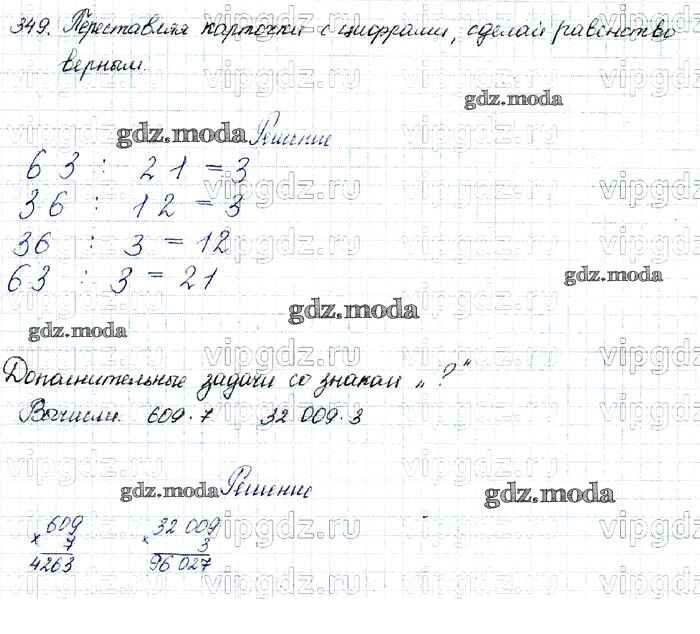 349. Переставляя карточки с цифрами, сделай равенство
верным.
gdz.moda
gdz.moda Решение
63 : 21 = 3
36 : 12 = 3
36 : 3 = 12
63 : 3 = 21
gdz.moda
gdz.moda
gdz.moda
Дополнительные задачи со знаком „?“
Вычисли. 609·7 32 009·3
gdz.moda Решение gdz.moda
609 32 009
× 7 × 3
4263 96 027
vipgdz.ru